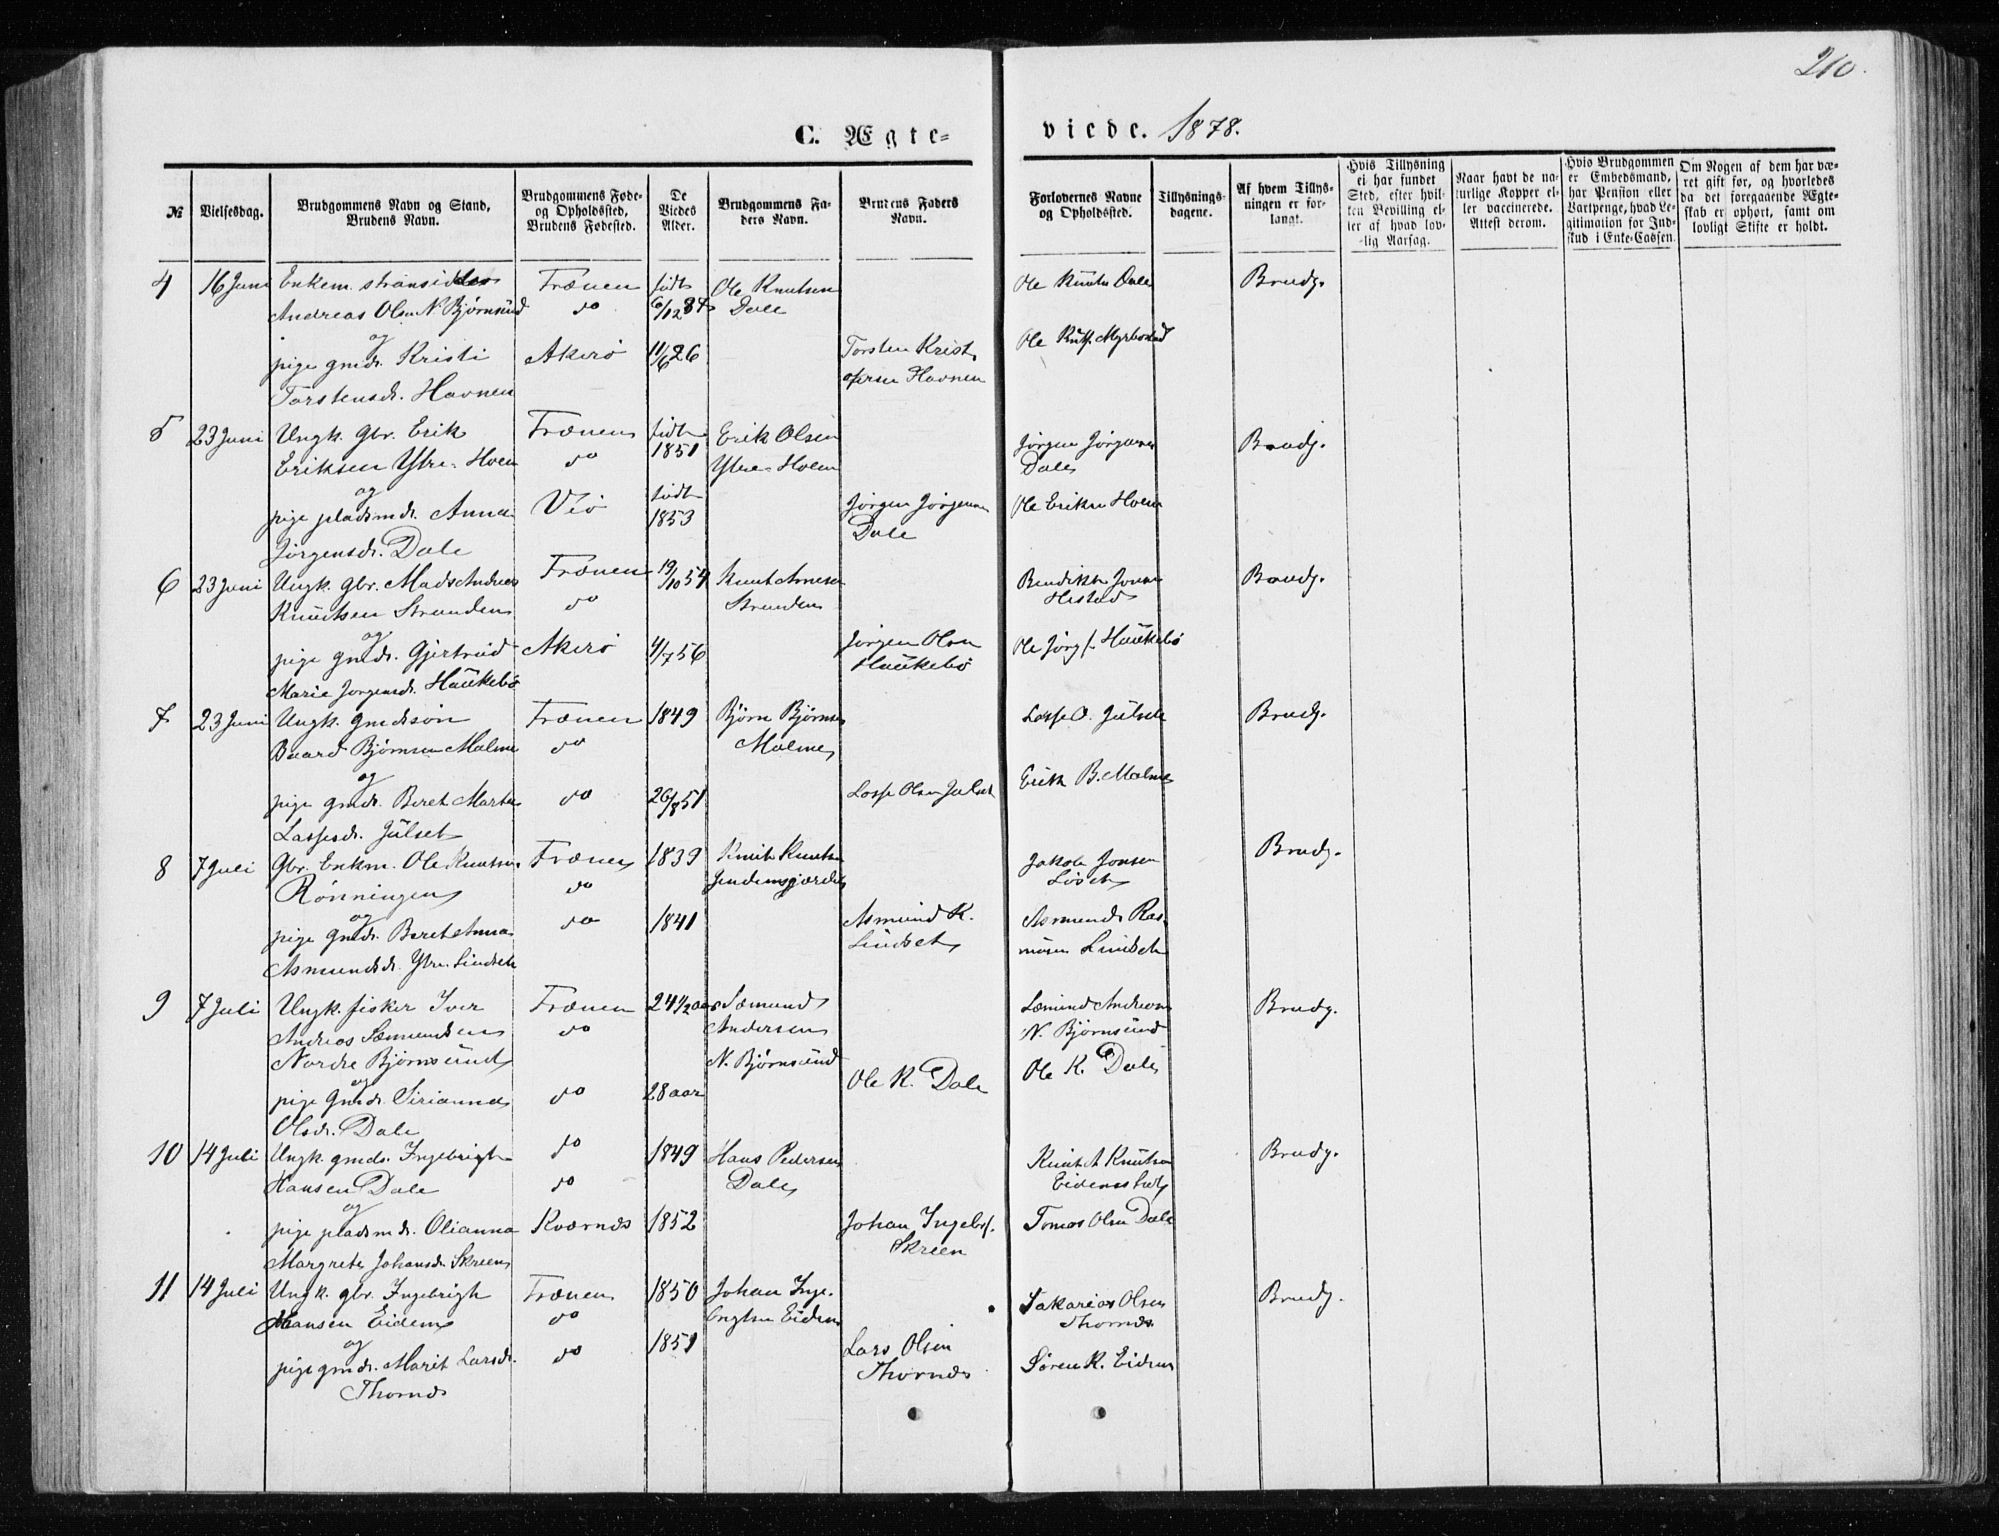 210.
C. Ægte-
viede. 1878.
№
Vielsesdag.
Brudgommens Navn og Stand,
Brudens Navn.
Brudgommens Føde-
og Opholdssted,
Brudens Fødested.
De
Viedes
Alder.
Brudgommens Fa-
ders Navn.
Brudens Faders
Navn.
Forlovernes Navne
og Opholdssted.
Tillysnings-
dagene.
Af hvem Tillys-
ningen er for-
langt.
Hvis Tillysning
ei har fundet
Sted, efter hvil-
ken Bevilling el-
ler af hvad lov-
lig Aarsag.
Naar havt de na-
turlige Kopper el-
ler vaccinerede.
Attest derom.
Hvis Brudgommen
er Embedsmand,
har Pension eller
Vartpenge, hvad Le-
gitimation for Ind-
skud i Enke-Cassen.
Om Nogen af dem har væ-
ret gift før, og hvorledes
da det foregaaende Ægte-
skab er ophørt, samt om
lovligt Skifte er holdt.
4 16 Juni Enkem. strandsidder Frænen født Ole Knutsen Ole Knuts Dale Brudg.
Andreas Olsen N. Bjørnsund do 6/12 34 Dale
og
pige gmdr. Kristi Akerö 11/6 26 Torsten Krist Ole Knuts. Myrbostad
Torstensdr. Havnen ofersen Havnen
5 23 Juni Ungk. Gbr. Erik Frænen født Erik Olsen Jørgen Jørgensen Brudg.
Eriksen Ytre-Hoem do 1851 Ytre-Hoem Dale
og
pige pladsmdr. Anna Veö født 1853 Jørgen Jørgensen Ole Eriksen Hoem
Jørgensdr. Dale Dale
6 23 Juni Ungk. Gbr. Mads Andreas Frænen 19/10 54 Knut Arnesen Bendikt Jonsen Brudg.
Knudtsen Stranden do Stranden Hestad
og
pige gmdr. Gjertrud Akerö 4/7 56 Jørgen Olsen Ole Jörg s. Haukebö
Marie Jorgensdr. Haukebö Haukebö
7 23 Juni Ungk. gmdsøn Frænen 1849 Bjørn Bjørnsen Lasse O. Julset Brudg.
Baard Bjørnsen Malme do Malme
og
pige gmdr. Beret Marta do 26/8 51 Lasse Olsen Julset Erik B. Malme
Lassesdr. Julset
8 7 Juli Gbr. Enkm. Ole Knutsen Frænen 1839 Knut Knutsen Jakob Jonsen Brudg.
Rönningen do Jendemsjordet Löset
og
pige gmdr. Beret Anna do 1841 Asmund R. Asmund Ras-
Asmundsdr. Ytre Lindset Lindset musen Lindset
9 7 Juli Ungk. fisker Iver Frænen 24 1/2 aar Sæmund Sæmund Andersen Brudg.
Andreas Sæmundsen do Andersen N. Bjørnsund
Nordre Bjørnsund N. Bjørnsund
og
pige gmdr. Serianna do 28 aar Ole K. Dale Ole K. Dale
Olsdr. Dale
10 14 Juli Ungk. gmds. Ingebrigt do 1849 Hans Pedersen Knut Knutsen Brudg.
Hansen Dale do Dale
og
pige pladsmdr. Olianna Kvernes 1852 Johan Ingebr. Tomas Olsen Dale
Margrete Johansdr. Skreen Skreen
11 14 Juli Ungk. gbr. Ingebrigt Frænen 1850 Johan Inge- Sakarias Olsen Brudg.
Hansen Eidem do brigtsen Eidem Thornes
og
pige gmdr. Marit Larsdr. do 1851 Lars Olsen Søren K. Eidem
Thornes Thornes